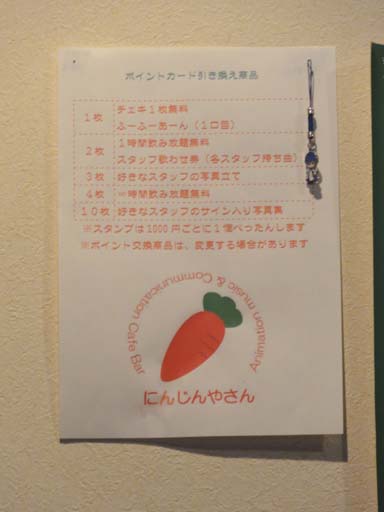 ポイントカード引き換え商品
1枚 チェキ1枚無料
ふーふーあーん(1口目)
2枚 1時間飲み放題無料
スタッフ歌わせ券(各スタッフ持ち曲)
3枚 好きなスタッフの写真立て
4枚 一時間飲み放題無料
10枚 好きなスタッフのサイン入り写真集
※スタンプは1000円ごとに1個ぺったんします
※ポイント交換商品は、変更する場合があります
Animation music & Communication Cafe Bar
にんじんやさん